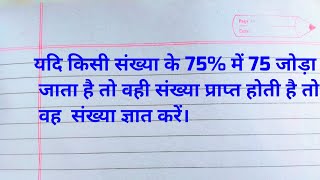 यदि किसी संख्या के 75% में 75 जोड़ा
जाता है तो वही संख्या प्राप्त होती है तो
वह संख्या ज्ञात करें।